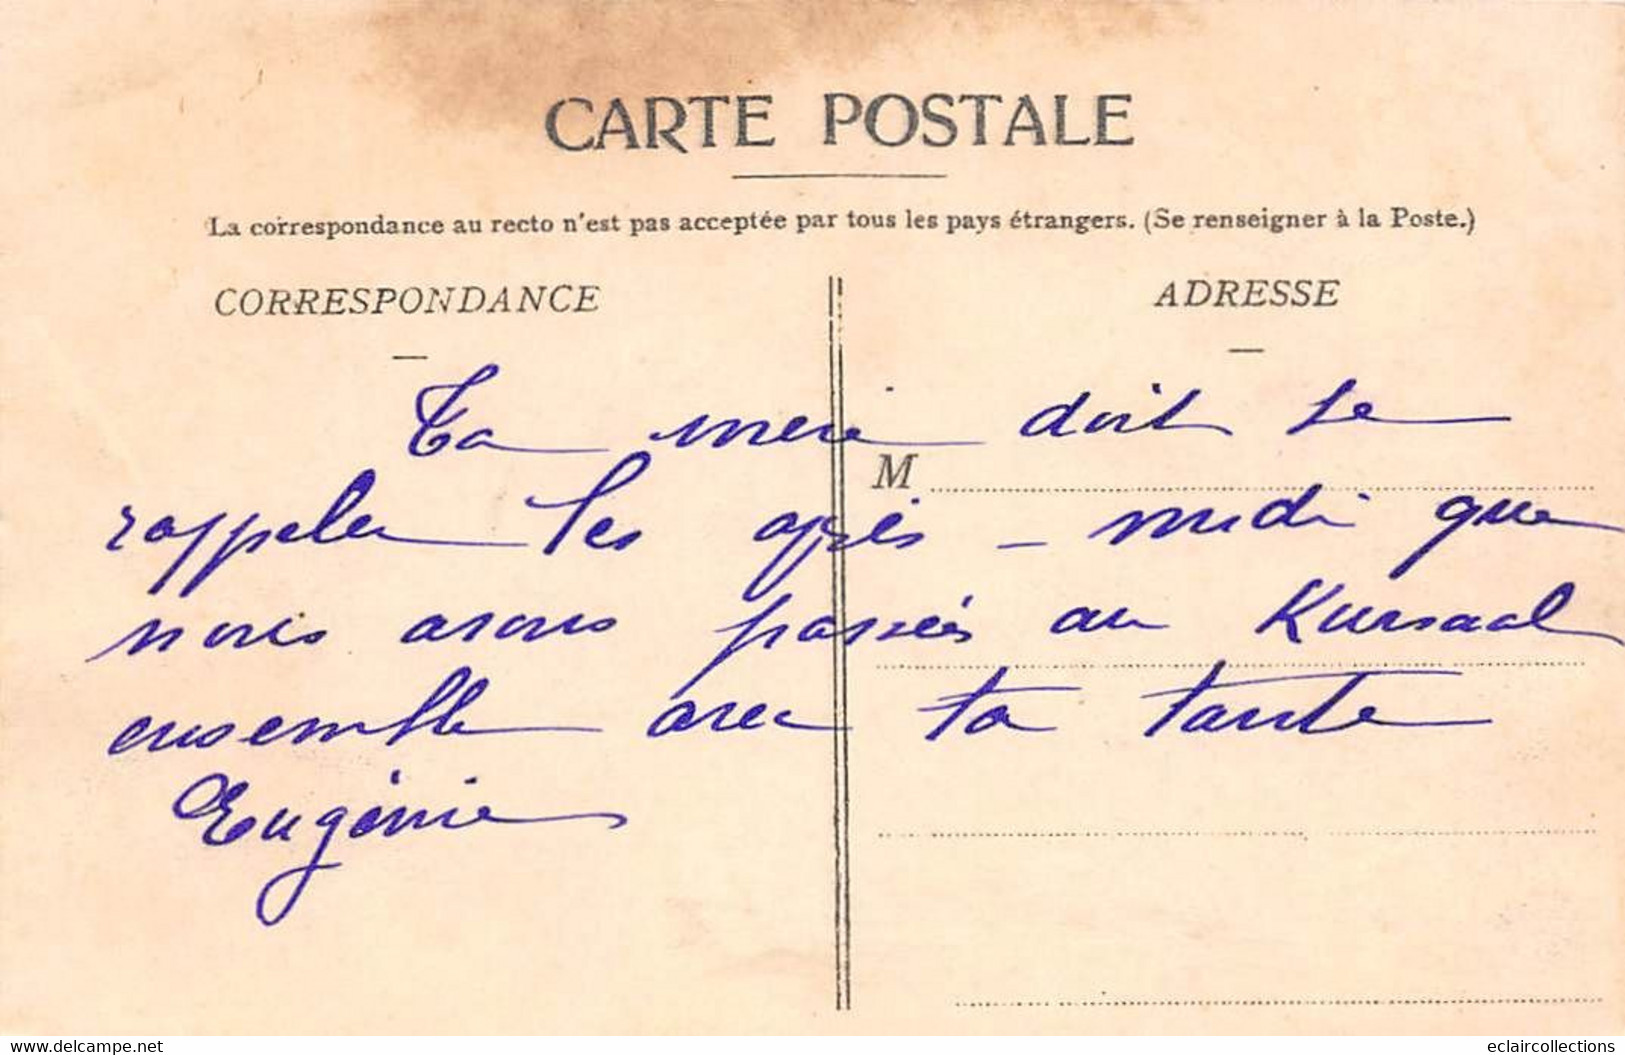 CARTE POSTALE
La correspondance au recto n'est pas acceptée par tous les pays étrangers. (Se renseigner à la Poste.)
CORRESPONDANCE
ADRESSE
M
Ta mère doit se
rappeler les après-midi que
nous avons passées au Kursaal
ensemble avec ta tante
Eugénie
www.delcampe.net
eclaircollections